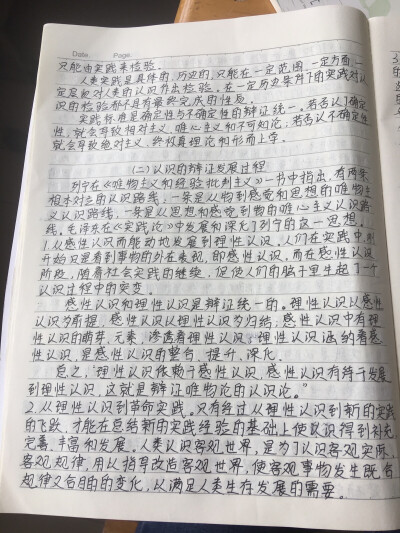 Date. Page.
只能由实践来检验。
人类实践是具体的,历史的,只能在一定范围,一定方面,一
定层面对人类的认识作出检验。在一定历史条件下的实践对认
识的检验都不具有最终完成的性质。
实践标准是确定性与不确定性的辩证统一。若否认了确定
性,就会导致相对主义、唯心主义和不可知论;若否认不确定性
就会导致绝对主义、终极真理论和形而上学。
(二)认识的辩证发展过程
列宁在《唯物主义和经验批判主义》一书中指出,有两条
根本对立的认识路线:一条是从物到感觉和思想的唯物主
义认识路线,一条是从思想和感觉到物的唯心主义认识路
线。毛泽东在《实践论》中发展和深化了列宁的这一思想。
1.从感性认识而能动地发展到理性认识。人们在实践中,
开始只是看到事物的外在表现,即感性认识,而在感性认识
阶段,随着社会实践的继续,促使人们的脑子里生起了一个
认识过程中的突变。
感性认识和理性认识是辩证统一的。理性认识以感性
认识为前提,感性认识以理性认识为归结;感性认识中有理
性认识的萌芽、元素,渗透着理性认识;理性认识涵纳着感
性认识,是感性认识的整合、提升、深化。
总之,“理性认识依赖于感性认识,感性认识有待于发展
到理性认识,这就是辩证唯物论的认识论。”
2.从理性认识到革命实践。只有经过从理性认识到新的实践
的飞跃,才能在总结新的实践经验的基础上使认识得到补充、
完善、丰富和发展。人类认识客观世界,是为了认识客观实际、
客观规律,用以指导改造客观世界,使客观事物发生既合
规律又合目的的变化,以满足人类生存发展的需要。